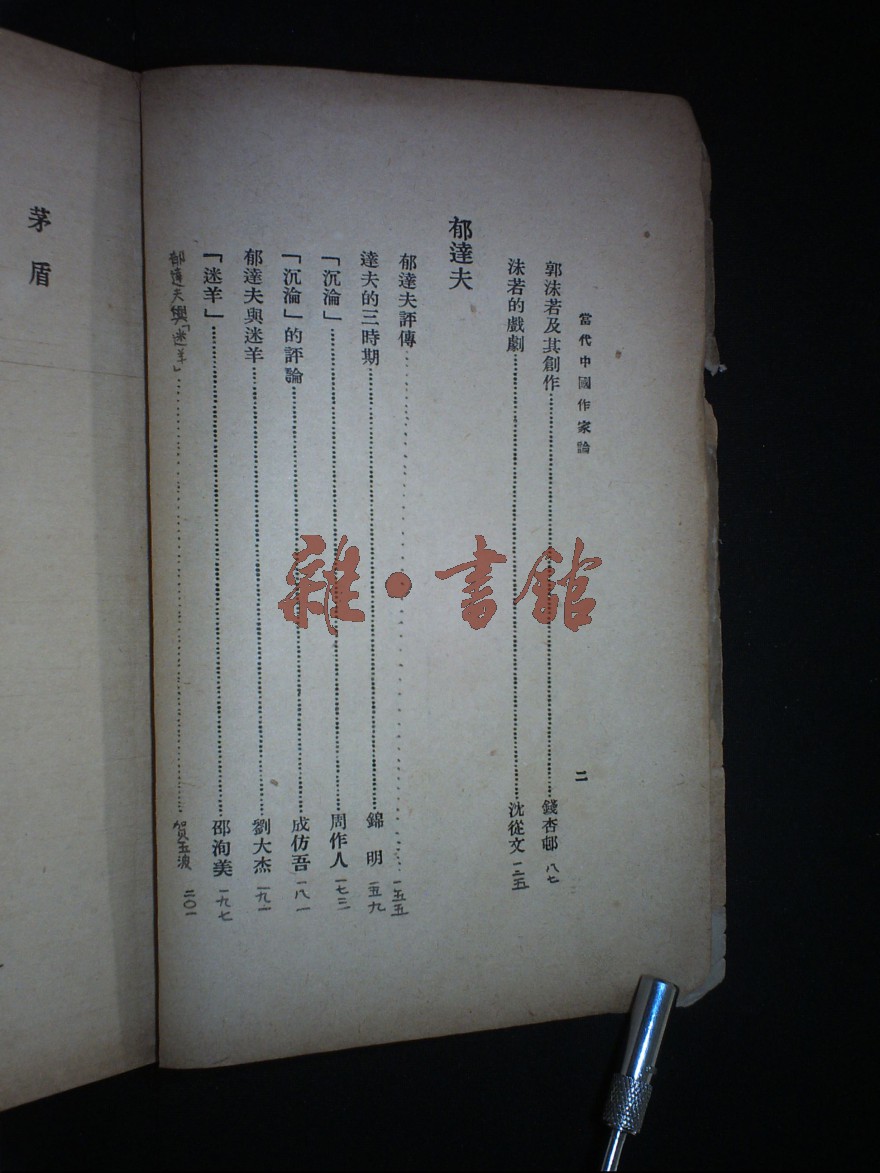 當代中國作家論
二
郭沫若及其創作……錢杏邨 八七
沫若的戲劇……沈從文 一二五
郁達夫
郁達夫評傳……一五五
達夫的三時期……錦明 一五九
「沉淪」……周作人 一七三
「沉淪」的評論……成仿吾 一八一
郁達夫與迷羊……劉大杰 一九一
「迷羊」……邵洵美 一九七
郁達夫與「迷羊」……賀玉波 二〇一
茅盾
雜·書館